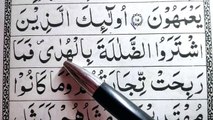 يَعْمَهُوْنَ ﴿۱۵﴾ اُولٰٓئِكَ الَّذِيْنَ
اشْتَرَوُا الضَّلٰلَةَ بِالْهُدٰى فَمَا
رَبِحَتْ تِّجَارَتُهُمْ وَمَا كَانُوْا